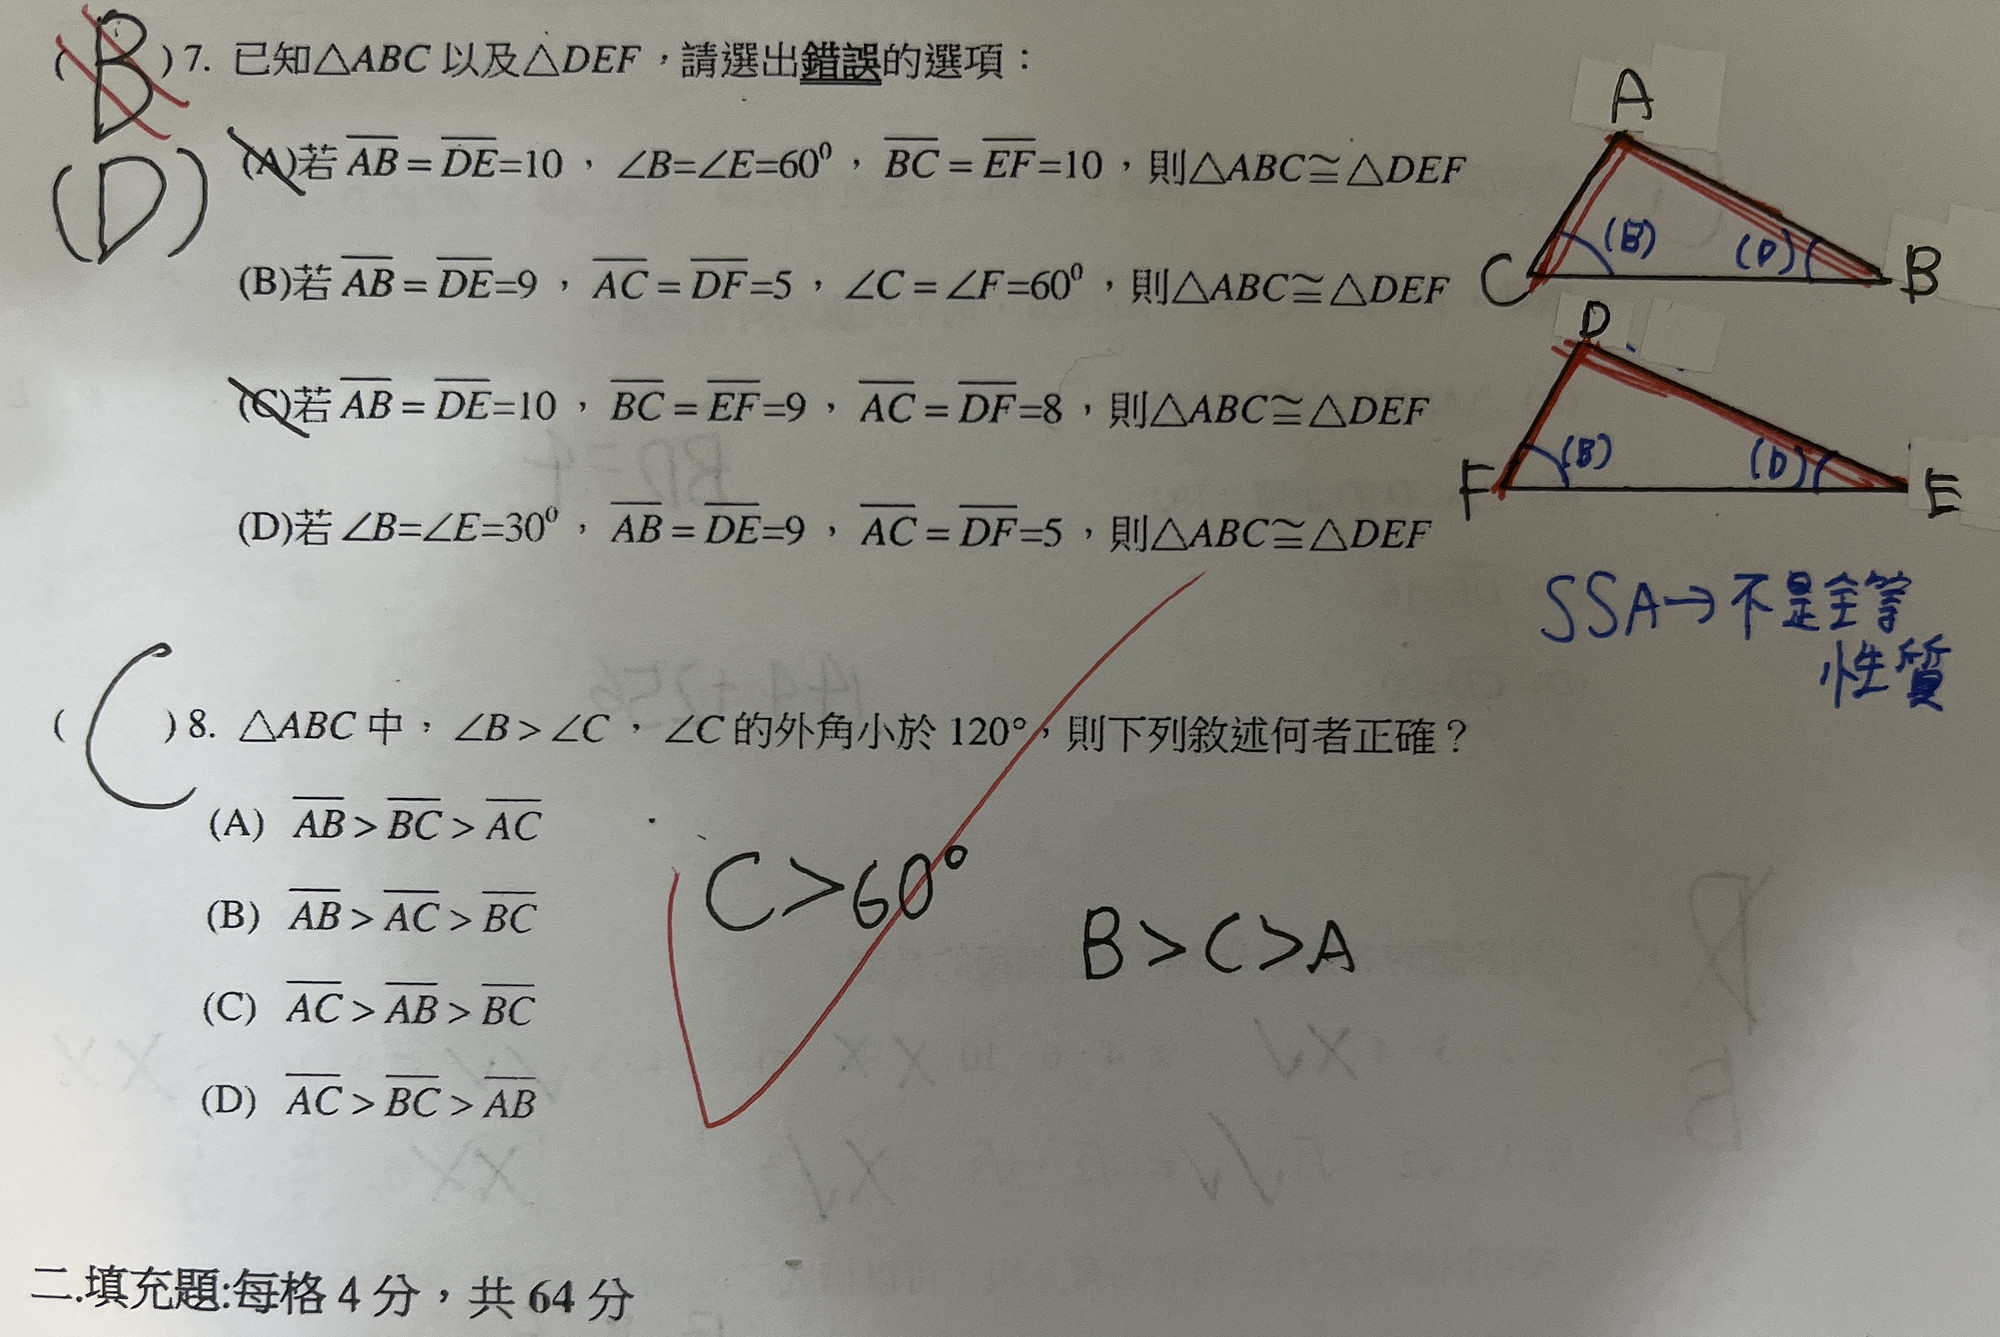 (B)7. 已知△ABC 以及△DEF，請選出錯誤的選項：
(D)
(A)若 AB = DE=10，∠B=∠E=60⁰，BC = EF=10，則△ABC≅△DEF
(B)若 AB = DE=9，AC = DF=5，∠C = ∠F=60⁰，則△ABC≅△DEF
(C)若 AB = DE=10，BC = EF=9，AC = DF=8，則△ABC≅△DEF
(D)若 ∠B=∠E=30⁰，AB = DE=9，AC = DF=5，則△ABC≅△DEF
A
(B) (D)
C B
D
(B) (D)
F E
SSA→不是全等
性質
(C)8. △ABC 中，∠B > ∠C，∠C 的外角小於 120°，則下列敘述何者正確？
(A) AB > BC > AC
(B) AB > AC > BC
(C) AC > AB > BC
(D) AC > BC > AB
C>60°
B>C>A
二.填充題:每格 4 分，共 64 分